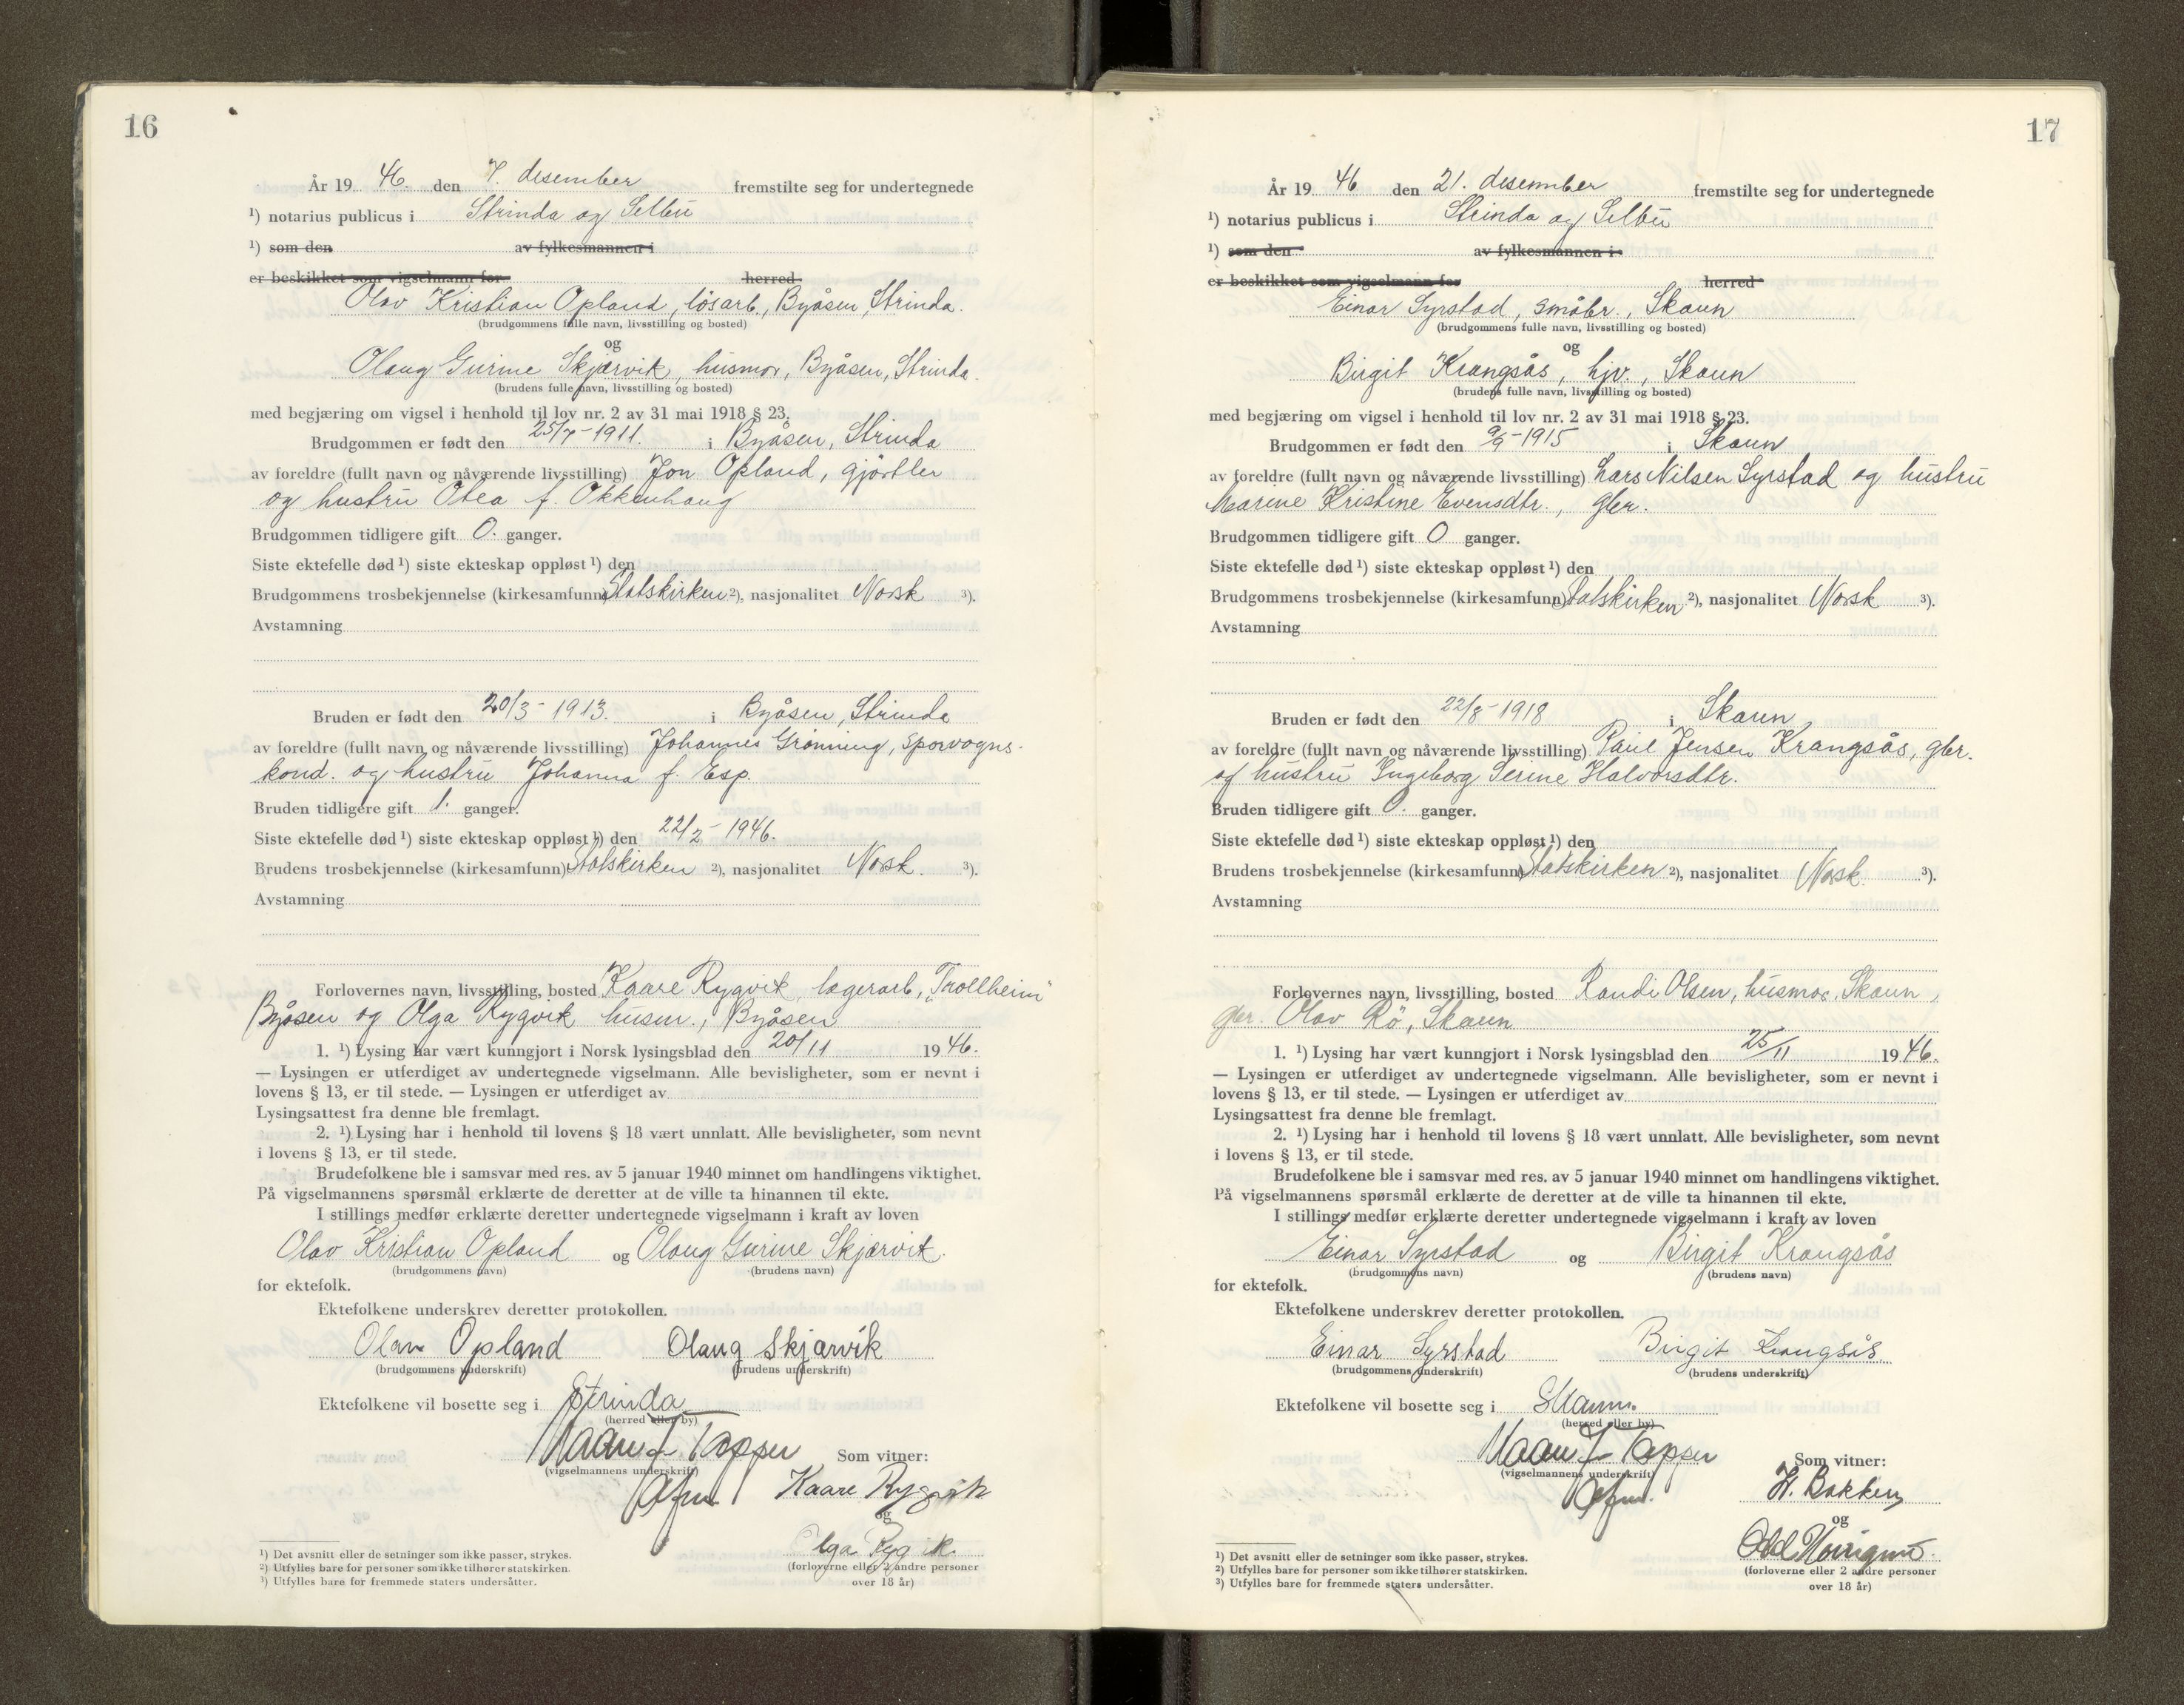 16
År 19 46. den 7. desember fremstilte seg for undertegnede
¹) notarius publicus i Strinda og Selbu
¹) som den av fylkesmannen i
er beskikket som vigselmann for herred.
Olav Kristian Opland, løsarb., Byåsen, Strinda.
(brudgommens fulle navn, livsstilling og bosted)
og
Olaug Gurine Skjærvik, husmor, Byåsen, Strinda.
(brudens fulle navn, livsstilling og bosted)
med begjæring om vigsel i henhold til lov nr. 2 av 31 mai 1918 § 23.
Brudgommen er født den 25/7-1911. i Byåsen, Strinda
av foreldre (fullt navn og nåværende livsstilling) Jon Opland, gjørtler
og hustru Otea f. Okkenhaug
Brudgommen tidligere gift 0. ganger.
Siste ektefelle død ¹) siste ekteskap oppløst ¹) den
Brudgommens trosbekjennelse (kirkesamfunn) Statskirken ²), nasjonalitet Norsk ³).
Avstamning
Bruden er født den 20/3-1913. i Byåsen, Strinda
av foreldre (fullt navn og nåværende livsstilling) Johannes Grønning, sporvogns-
kond. og hustru Johanna f. Esp.
Bruden tidligere gift 1. ganger.
Siste ektefelle død ¹) siste ekteskap oppløst ¹) den 22/2-1946.
Brudens trosbekjennelse (kirkesamfunn) Statskirken ²), nasjonalitet Norsk. ³).
Avstamning
Forlovernes navn, livsstilling, bosted Kaare Rygvik, lagerarb., "Trollheim"
Byåsen og Olga Rygvik husm., Byåsen
1. ¹) Lysing har vært kunngjort i Norsk lysingsblad den 20/11 1946.
— Lysingen er utferdiget av undertegnede vigselmann. Alle bevisligheter, som er nevnt i
lovens § 13, er til stede. — Lysingen er utferdiget av
Lysingsattest fra denne ble fremlagt.
2. ¹) Lysing har i henhold til lovens § 18 vært unnlatt. Alle bevisligheter, som nevnt
i lovens § 13, er til stede.
Brudefolkene ble i samsvar med res. av 5 januar 1940 minnet om handlingens viktighet.
På vigselmannens spørsmål erklærte de deretter at de ville ta hinannen til ekte.
I stillings medfør erklærte deretter undertegnede vigselmann i kraft av loven
Olav Kristian Opland og Olaug Gurine Skjærvik.
(brudgommens navn) (brudens navn)
for ektefolk.
Ektefolkene underskrev deretter protokollen.
Olav Opland Olaug Skjærvik
(brudgommens underskrift) (brudens underskrift)
Ektefolkene vil bosette seg i Strinda
(herred eller by)
Som vitner:
(vigselmannens underskrift)
Kaare Rygvik
og
Olga Rygvik.
(forloverne eller 2 andre personer
over 18 år)
¹) Det avsnitt eller de setninger som ikke passer, strykes.
²) Utfylles bare for personer som ikke tilhører statskirken.
³) Utfylles bare for fremmede staters undersåtter.
17
År 19 46 den 21. desember fremstilte seg for undertegnede
¹) notarius publicus i Strinda og Selbu
¹) som den av fylkesmannen i
er beskikket som vigselmann for herred
Einar Syrstad, småbr., Skaun
(brudgommens fulle navn, livsstilling og bosted)
og
Birgit Krangsås, hjv., Skaun
(brudens fulle navn, livsstilling og bosted)
med begjæring om vigsel i henhold til lov nr. 2 av 31 mai 1918 § 23.
Brudgommen er født den 9/9-1915 i Skaun
av foreldre (fullt navn og nåværende livsstilling) Lars Nilsen Syrstad og hustru
Marene Kristine Evensdtr., gbr.
Brudgommen tidligere gift 0 ganger.
Siste ektefelle død ¹) siste ekteskap oppløst ¹) den
Brudgommens trosbekjennelse (kirkesamfunn) Statskirken ²), nasjonalitet Norsk ³).
Avstamning
Bruden er født den 22/8-1918 i Skaun
av foreldre (fullt navn og nåværende livsstilling) Paul Jensen Krangsås, gbr.
og hustru Ingeborg Serine Halvorsdtr.
Bruden tidligere gift 0. ganger.
Siste ektefelle død ¹) siste ekteskap oppløst ¹) den
Brudens trosbekjennelse (kirkesamfunn) Statskirken ²), nasjonalitet Norsk. ³).
Avstamning
Forlovernes navn, livsstilling, bosted Randi Olsen, husmor, Skaun,
gbr. Olav Rö, Skaun
1. ¹) Lysing har vært kunngjort i Norsk lysingsblad den 25/11 1946.
— Lysingen er utferdiget av undertegnede vigselmann. Alle bevisligheter, som er nevnt i
lovens § 13, er til stede. — Lysingen er utferdiget av
Lysingsattest fra denne ble fremlagt.
2. ¹) Lysing har i henhold til lovens § 18 vært unnlatt. Alle bevisligheter, som nevnt
i lovens § 13, er til stede.
Brudefolkene ble i samsvar med res. av 5 januar 1940 minnet om handlingens viktighet.
På vigselmannens spørsmål erklærte de deretter at de ville ta hinannen til ekte.
I stillings medfør erklærte deretter undertegnede vigselmann i kraft av loven
Einar Syrstad og Birgit Krangsås
(brudgommens navn) (brudens navn)
for ektefolk.
Ektefolkene underskrev deretter protokollen.
Einar Syrstad Birgit Krangsås
(brudgommens underskrift) (brudens underskrift)
Ektefolkene vil bosette seg i Skaun.
(herred eller by)
Som vitner:
(vigselmannens underskrift)
H. Bakken
og
Odd
(forloverne eller 2 andre personer
over 18 år)
¹) Det avsnitt eller de setninger som ikke passer, strykes.
²) Utfylles bare for personer som ikke tilhører statskirken.
³) Utfylles bare for fremmede staters undersåtter.